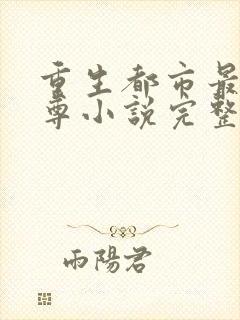 重生都市最
尊小說完整
雨陽君